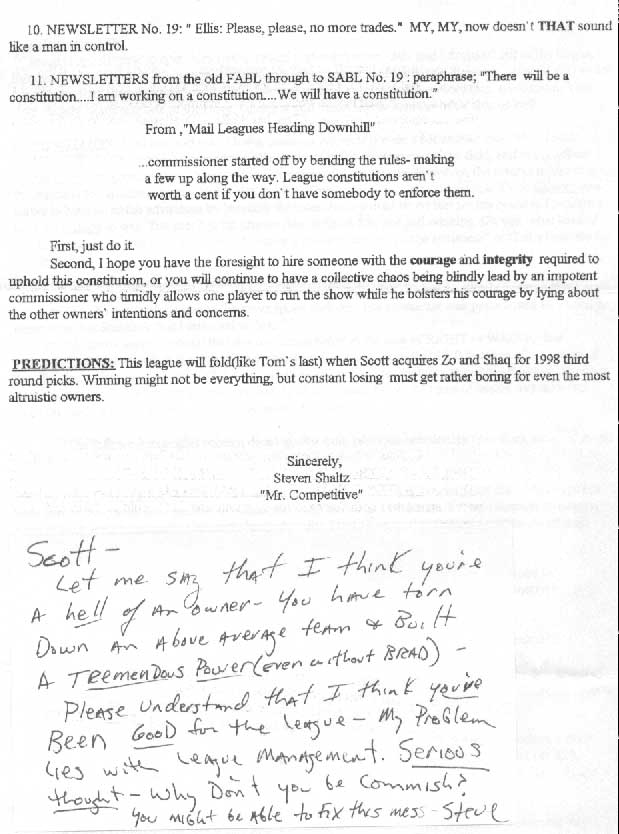 10. NEWSLETTER No. 19: " Ellis: Please, please, no more trades."  MY, MY, now doesn't THAT sound
like a man in control.
11. NEWSLETTERS from the old FABL through to SABL No. 19 : paraphrase; "There  will be a
constitution....I am working on a constitution....We will have a constitution."
From ,"Mail Leagues Heading Downhill"
...commissioner started off by bending the rules- making
a few up along the way. League constitutions aren't
worth a cent if you don't have somebody to enforce them.
First, just do it.
Second, I hope you have the foresight to hire someone with the courage and integrity required to
uphold this constitution, or you will continue to have a collective chaos being blindly lead by an impotent
commissioner who timidly allows one player to run the show while he bolsters his courage by lying about
the other owners' intentions and concerns.
PREDICTIONS: This league will fold(like Tom's last) when Scott acquires Zo and Shaq for 1998 third
round picks. Winning might not be everything, but constant losing must get rather boring for even the most
altruistic owners.
Sincerely,
Steven Shaltz
"Mr. Competitive"
Scott -
Let me say that I think you're
A hell of an owner - You have torn
Down An Above Average team & Built
A Tremendous Power (even without BRAD) -
Please understand that I think you've
Been Good for the league - My Problem
lies with League Management. Serious
thought - Why Don't you be Commish?
You might be Able to fix this mess - Steve